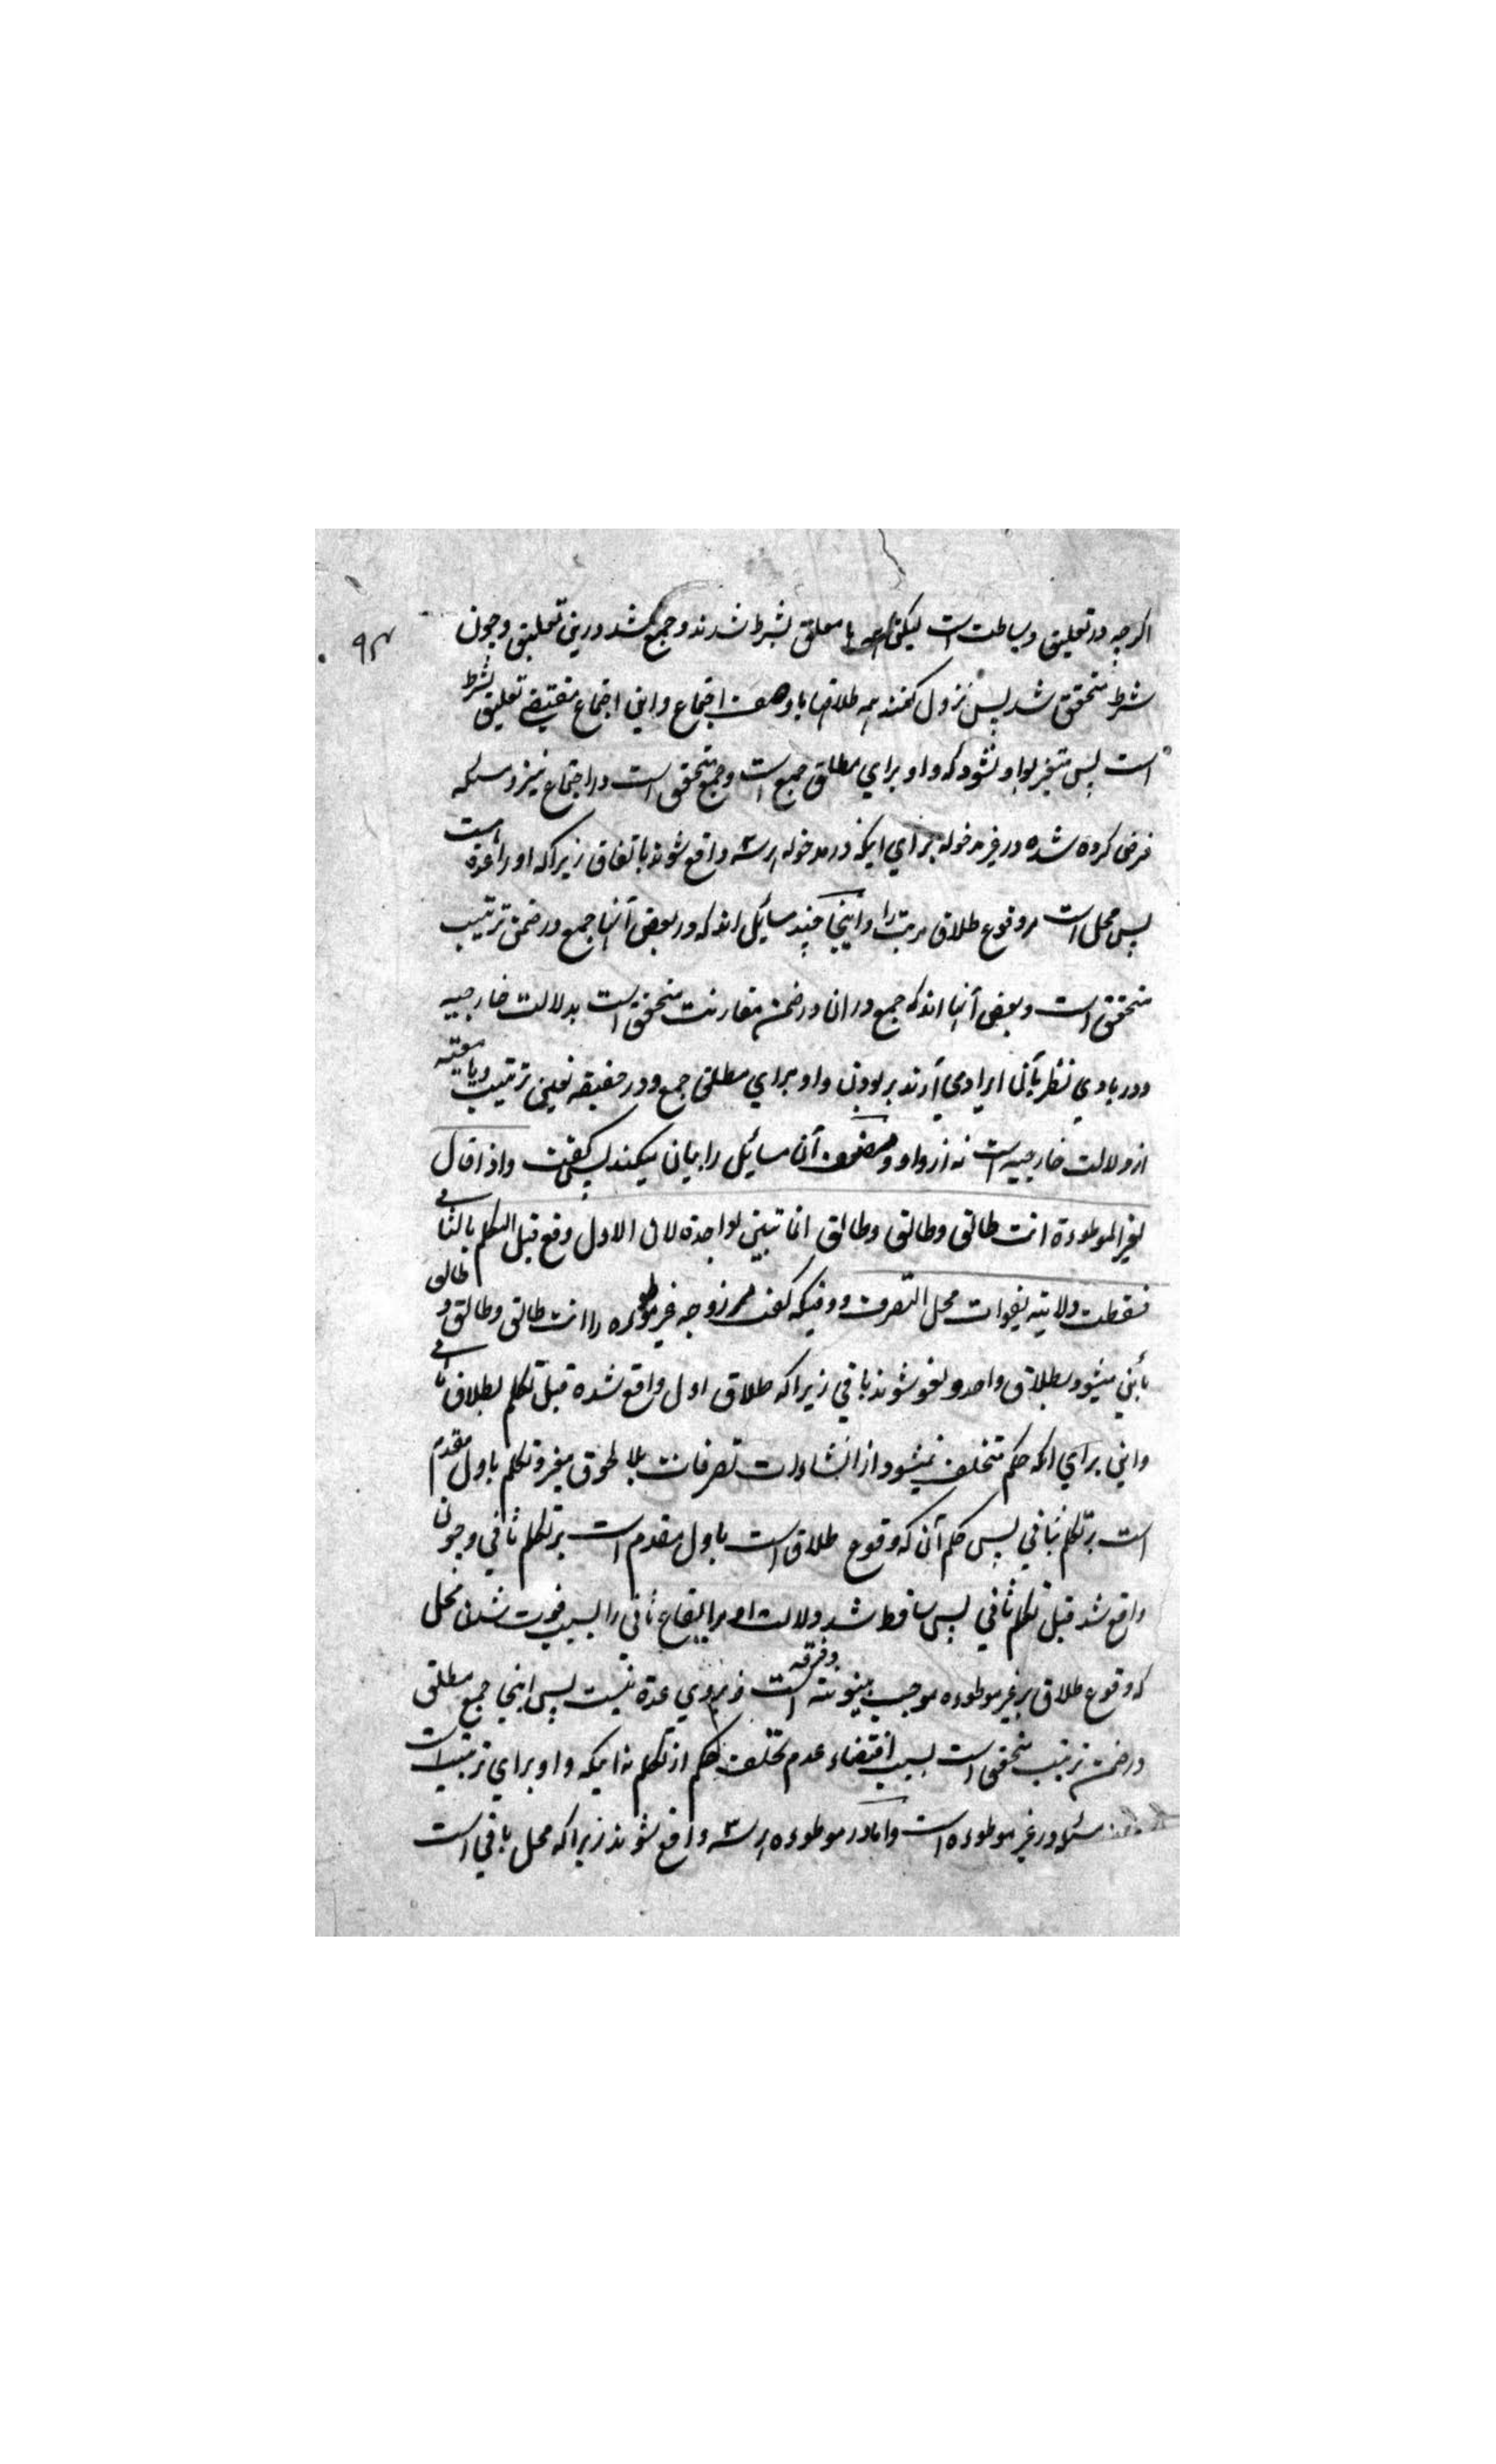 ۹۴
اکرچه در تعلیق وساطت است لیکن همه با معلق بشرط شدند و جمع شد درین تعلیق و چون
شرط متحقق شد پس نزول کنند همه طلاقها با وصف اجتماع و این اجتماع مقتضی تعلیق بشرط
است پس متغیر بواو نشود که واو برای مطلق جمع است و جمع متحقق است در اجتماع نیز و مسئله
فرض کرده شده در غیر مدخوله برای اینکه در مدخوله هر سه واقع شوند باتفاق زیراکه او را عدة است
پس محل است مر وقوع طلاق مرتب را و اینجا چند مسائل اند که در بعض آنها جمع در ضمن ترتیب
متحقق است و بعض آنها اند که جمع در ان در ضمن مقارنت متحقق است بدلالت خارجیه
و در بادی نظر بآن ایراد می آرند بر بودن واو برای مطلق جمع و در حقیقه تعین ترتیب و یا معیته
از دلالت خارجیه است نه از واو و مصنف آن مسائل را بیان میکند پس گفت واذا قال
لغیر الموطوءة انت طالق وطالق وطالق انما تبین بواحدة لان الاول وقع قبل التکلم بالثانی
فسقطت ولایته لفوات محل التصرف و وقتیکه گفت مر زوجه غیر موطوءه را انت طالق وطالق و طالق
بائن میشود بطلاق واحد و لغو شوند باقی زیراکه طلاق اول واقع شده قبل تکلم بطلاق ثانی
و این برای انکه حکم متخلف نمیشود از انشاءات تصرفات بلا لحوق مغیر و تکلم باول مقدم
است بر تکلم بثانی پس حکم آن که وقوع طلاق است باول مقدم است بر تکلم ثانی و چون
واقع شد قبل تکلم ثانی پس ساقط شد ولایت او برا ایقاع ثانی را بسبب فوت شدن محل
که وقوع طلاق بر غیر موطوءه موجب بینونته و فرقه است و بروی عدة نیست پس اینجا جمع مطلق
در ضمن ترتیب متحقق است بسبب اقتضاء عدم تخلف حکم از تکلم نه اینکه واو برای ترتیب است
مسئله در غیر موطوءه است و اما در موطوءه هر سه واقع شوند زیراکه محل باقی است